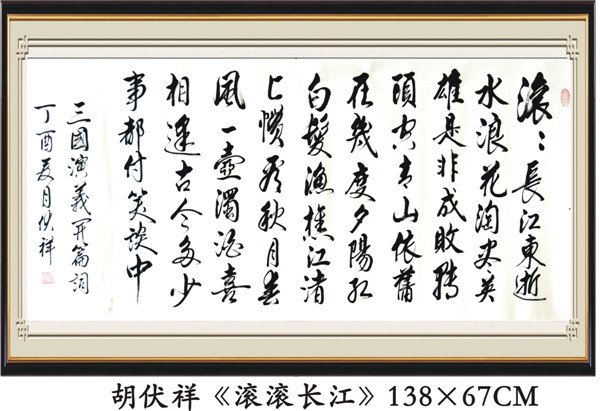 滚〻長江東逝
水浪花淘盡英
雄是非成敗轉
頭空青山依舊
在幾度夕陽紅
白髮漁樵江渚
上慣看秋月春
風一壺濁酒喜
相逢古今多少
事都付笑談中
三國演義开篇詞
丁酉夏月伏祥
胡伏祥《滚滚长江》138×67CM